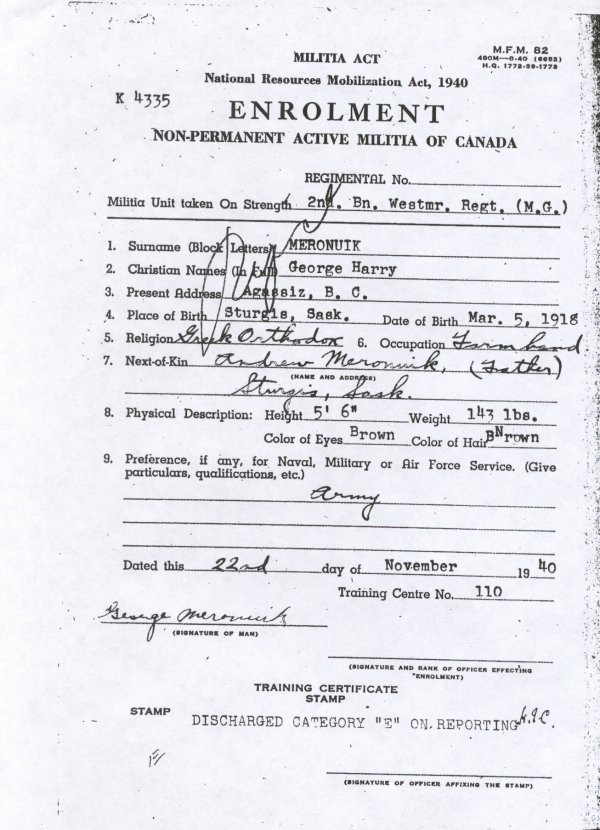 M.F.M. 82
480M—8-40 (6652)
H.Q. 1772-39-1773
MILITIA ACT
National Resources Mobilization Act, 1940
K 4335
ENROLMENT
NON-PERMANENT ACTIVE MILITIA OF CANADA
REGIMENTAL No.
Militia Unit taken On Strength 2nd. Bn. Westmr. Regt. (M.G.)
1. Surname (Block Letters) MERONUIK
2. Christian Names (In full) George Harry
3. Present Address Agassiz, B. C.
4. Place of Birth Sturgis, Sask. Date of Birth Mar. 5, 1918
5. Religion Greek Orthodox 6. Occupation Farm hand
7. Next-of-Kin Andrew Meronuik, (Father)
(NAME AND ADDRESS)
Sturgis, Sask.
8. Physical Description: Height 5' 6" Weight 143 lbs.
Color of Eyes Brown Color of Hair Brown
9. Preference, if any, for Naval, Military or Air Force Service. (Give
particulars, qualifications, etc.)
Army
Dated this 22nd day of November 19 40
Training Centre No. 110
George Meronuik
(SIGNATURE OF MAN)
(SIGNATURE AND RANK OF OFFICER EFFECTING
ENROLMENT)
TRAINING CERTIFICATE
STAMP
STAMP
DISCHARGED CATEGORY "E" ON REPORTING
(SIGNATURE OF OFFICER AFFIXING THE STAMP)